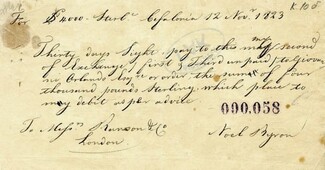 K. 105
For $4000 Sterl. Cefalonia 12 Novr. 1823
Thirty days Sight pay to this my second
of Exchange (first & Third unpaid) to Giovan
ni Orlando Esqre or order the sum of four
thousand pounds Sterling which place to
my debit as per advice
000.058
To Messrs Ransom & Co Noel Byron
London